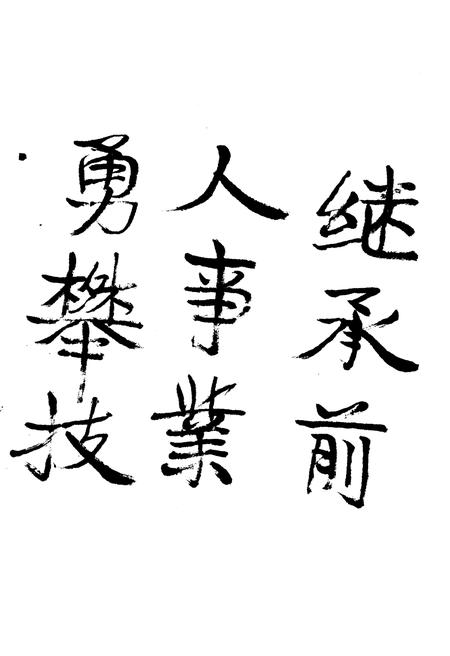 继承前
人事業
勇攀技